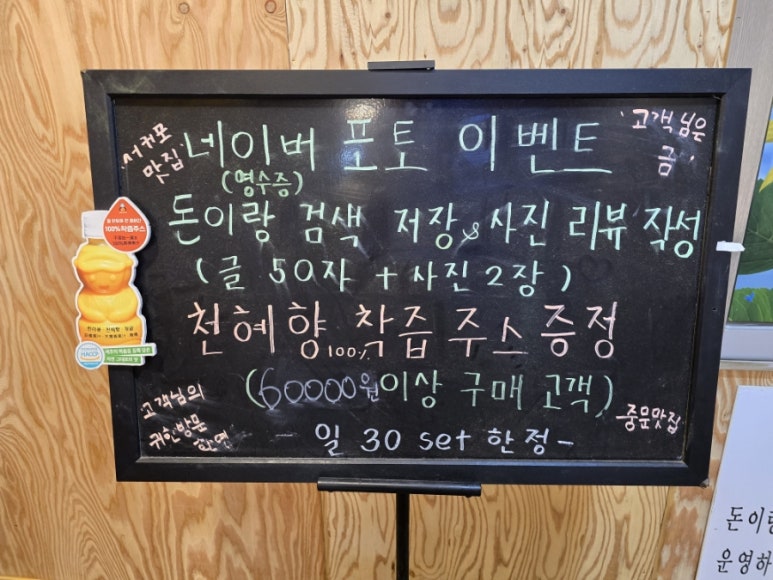 서귀포
맛집
네이버 포토 이벤트
'고객님은
금'
(영수증)
돈이랑 검색 저장& 사진 리뷰 작성
(글 50자 + 사진 2장)
천혜향 100% 착즙 주스 증정
(60000원 이상 구매 고객)
고객님의
귀한방문
환영
중문맛집
일 30 set 한정-
100%착즙주스
HACCP
돈이랑
운영하